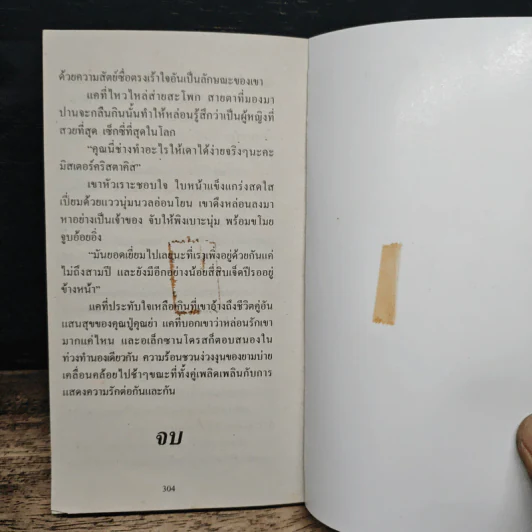 ด้วยความสัตย์ซื่อตรงเร้าใจอันเป็นลักษณะของเขา
แคทีไหวไหล่ส่ายสะโพก สายตาที่มองมา
ปานจะกลืนกินนั้นทำให้หล่อนรู้สึกว่าเป็นผู้หญิงที่
สวยที่สุด เซ็กซี่ที่สุดในโลก
“คุณนี่ช่างทำอะไรให้เดาได้ง่ายจริงๆนะคะ
มิสเตอร์คริสตาคิส”
เขาหัวเราะชอบใจ ใบหน้าแข็งแกร่งสดใส
เปี่ยมด้วยแววนุ่มนวลอ่อนโยน เขาดึงหล่อนลงมา
หาอย่างเป็นเจ้าของ จับให้พิงเบาะนุ่ม พร้อมขโมย
จูบอ้อยอิ่ง
“มันยอดเยี่ยมไปเลยนะที่เราเพิ่งอยู่ด้วยกันแค่
ไม่ถึงสามปี และยังมีอีกอย่างน้อยสี่สิบเจ็ดปีรออยู่
ข้างหน้า”
แคทีประทับใจเหลือเกินที่เขาอ้างถึงชีวิตคู่อัน
แสนสุขของคุณปู่คุณย่า แคทีบอกเขาว่าหล่อนรักเขา
มากแค่ไหน และอเล็กซานโดรสก็ตอบสนองใน
ท่วงทำนองเดียวกัน ความร้อนชวนง่วงงุนของยามบ่าย
เคลื่อนคล้อยไปช้าๆขณะที่ทั้งคู่เพลิดเพลินกับการ
แสดงความรักต่อกันและกัน
จบ
304